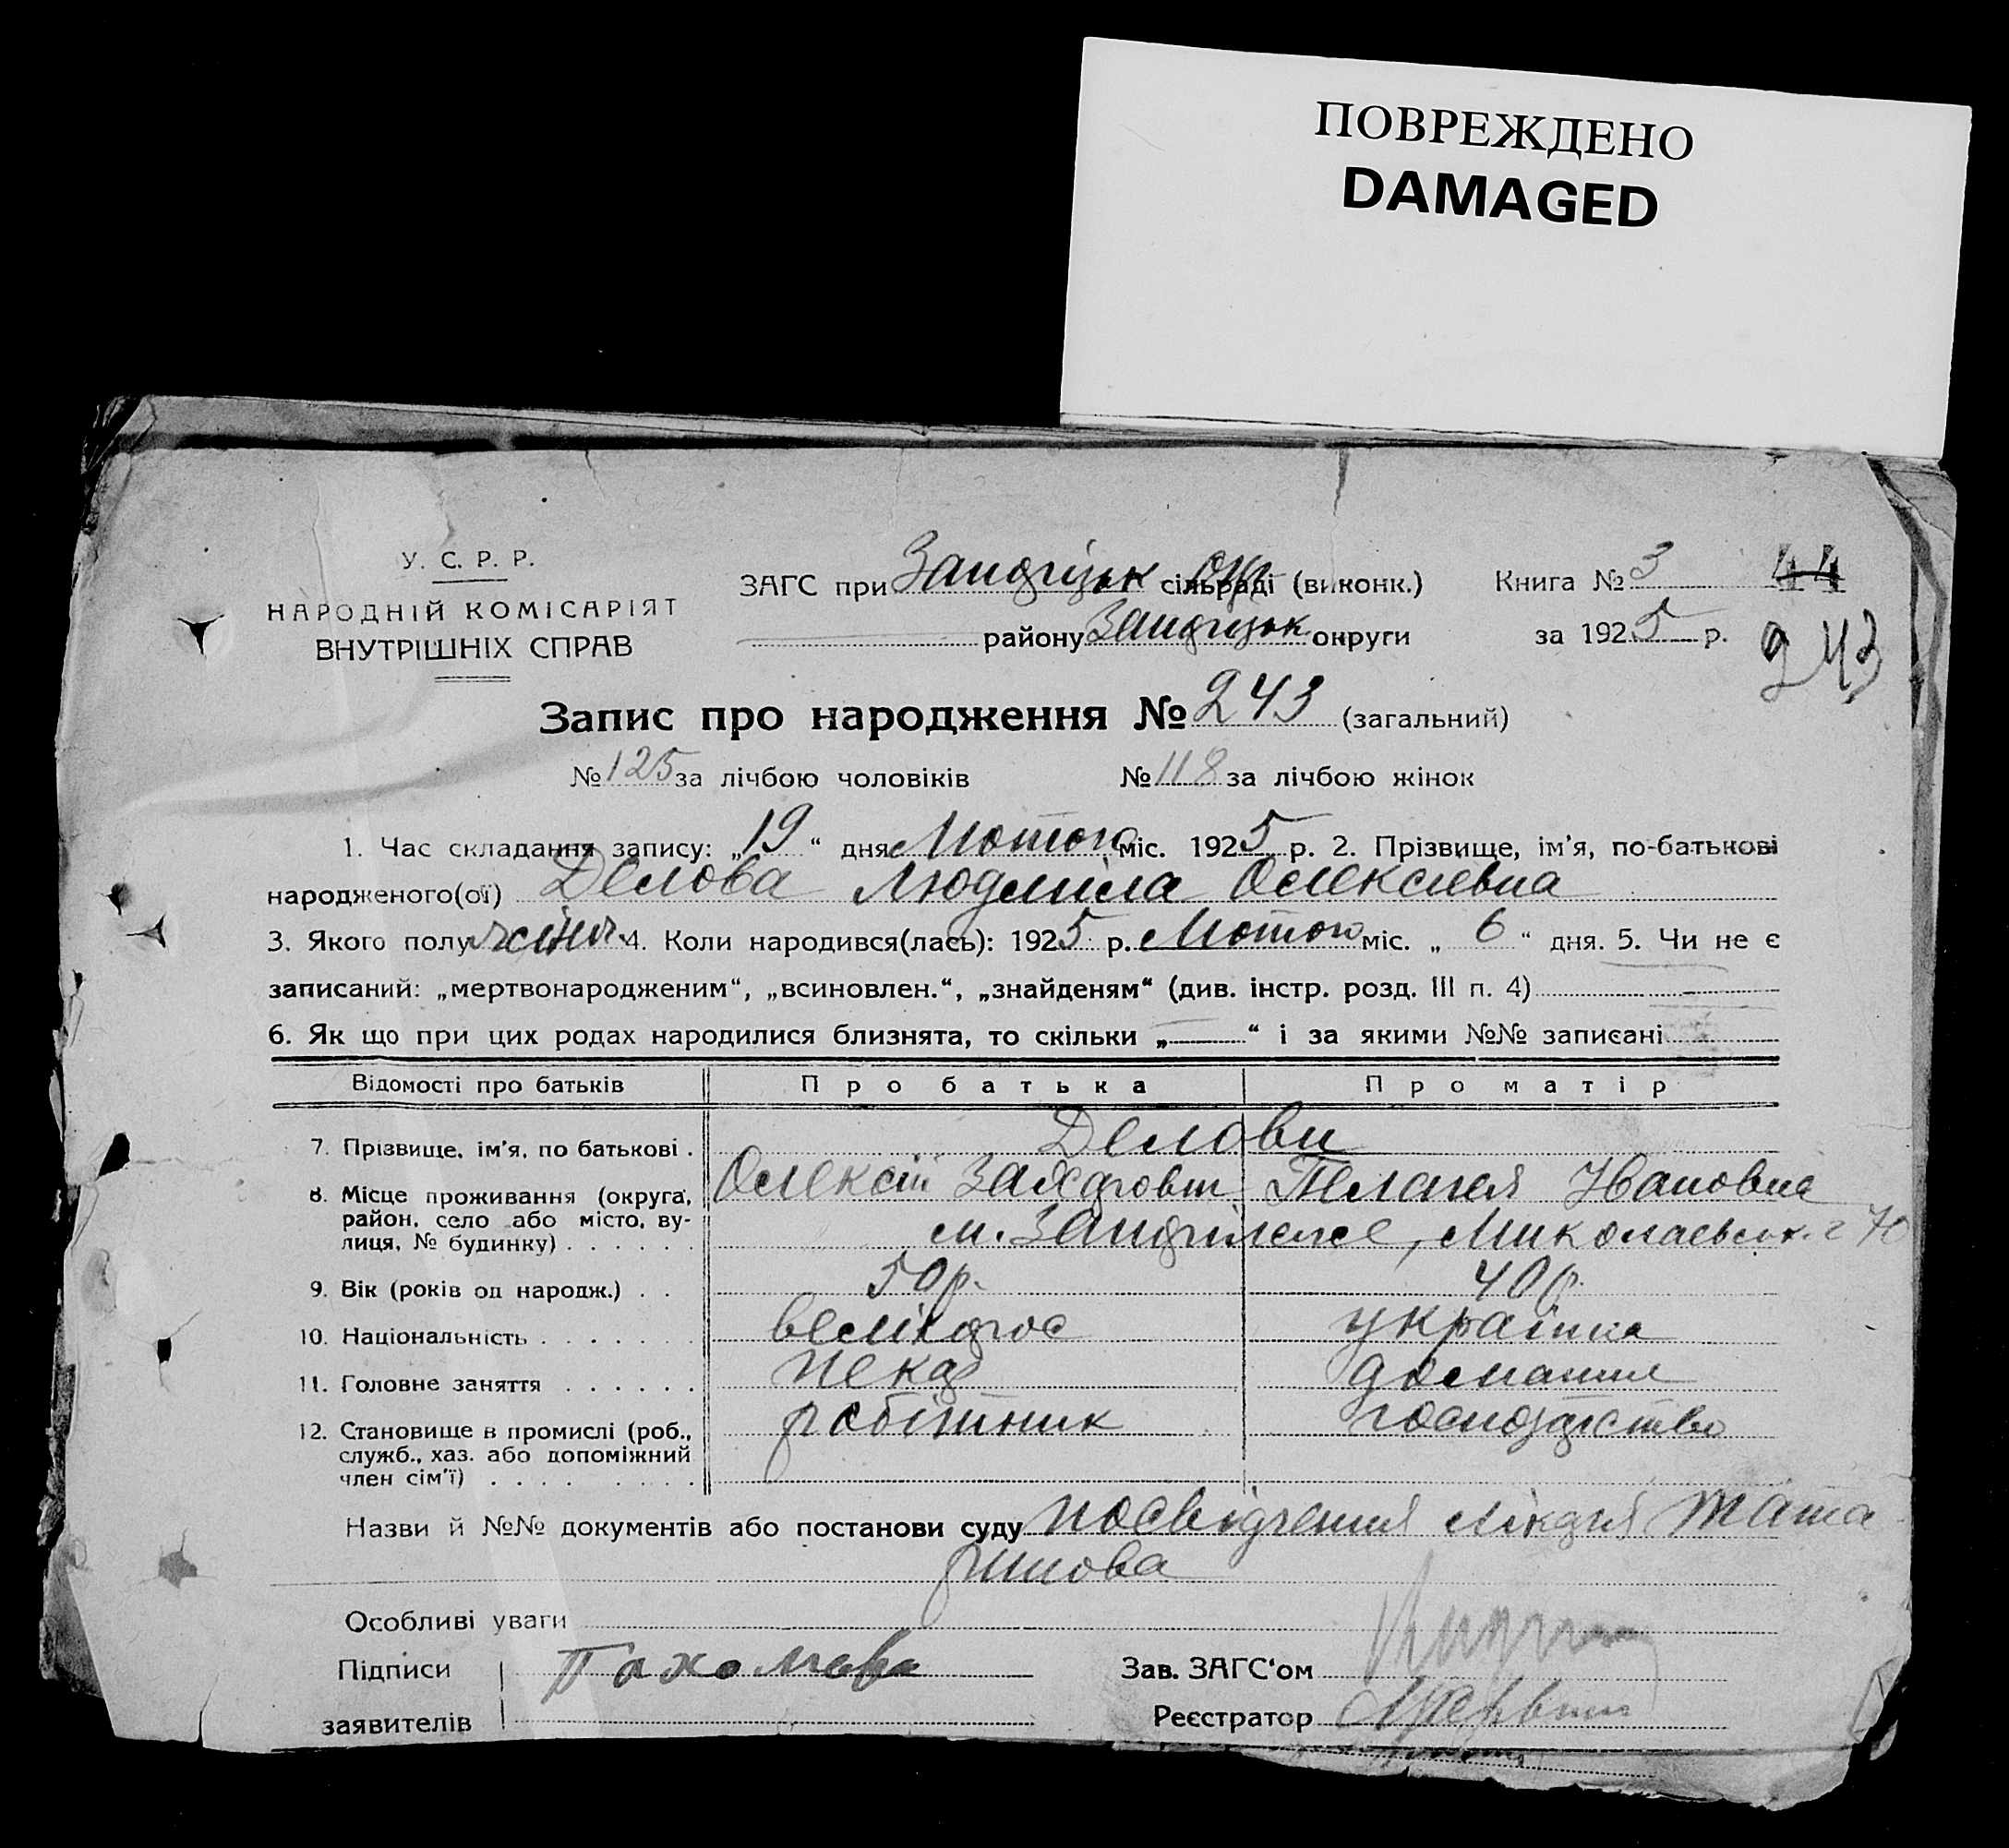 ПОВРЕЖДЕНО
DAMAGED
У. С. Р. Р.
НАРОДНІЙ КОМІСАРІЯТ
ВНУТРІШНІХ СПРАВ
ЗАГС при Запорізьк окр сільраді (виконк.)
району Запорізьк округи
Книга № 3
44
за 1925 р.
243
Запис про народження № 243 (загальний)
№ 125 за лічбою чоловіків № 118 за лічбою жінок
1. Час складання запису: „19“ дня Лютого міс. 1925 р. 2. Прізвище, ім'я, по-батькові
народженого(ої) Делова Людміла Олексіевна
3. Якого полу жіноч. 4. Коли народився(лась): 1925 р. Лютого міс. „ 6 “ дня. 5. Чи не є
записаний: „мертвонародженим“, „всиновлен.“, „знайденям“ (див. інстр. розд. III п. 4)
6. Як що при цих родах народилися близнята, то скільки „ “ і за якими №№ записані
Відомості про батьків Про батька Про матір
7. Прізвище, ім'я, по батькові . Делови
Олексій Захарович Пелагея Ивановна
8. Місце проживання (округа, район, село або місто, вулиця, № будинку) . . . . . . м. Запоріжже, Миколаевськ. 70
9. Вік (років од народж.) . . 50 р. 40 р.
10. Національність . . . . . . . великорос українка
11. Головне заняття . . . . . . пекар домашнє
12. Становище в промислі (роб., служб., хаз. або допоміжний член сім'ї) . . . . . . . . робітник господарство
Назви й №№ документів або постанови суду посвідчення лікаря Тата
ринова
Особливі уваги
Підписи Пахомова
Зав. ЗАГС'ом
заявителів
Реєстратор